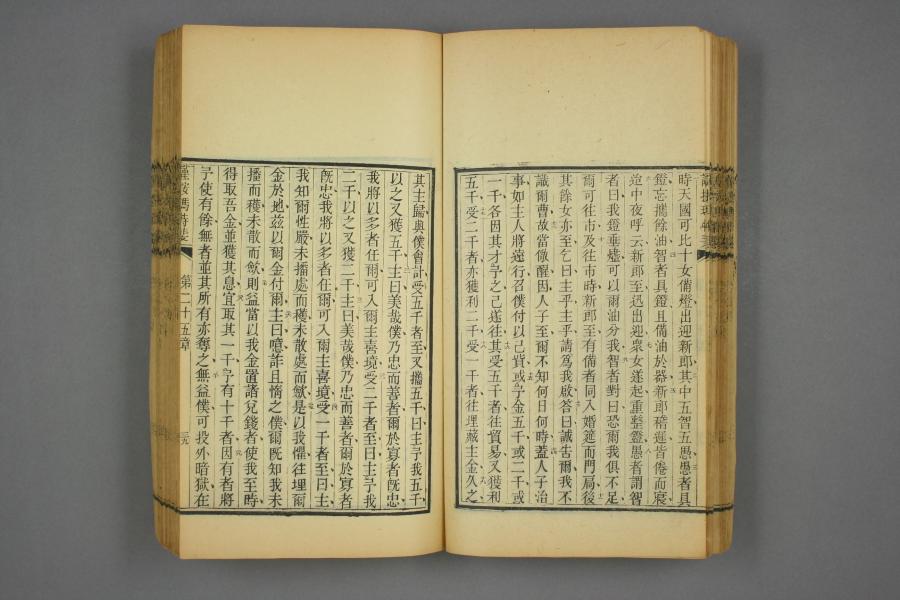 時天國可比十女備燈出迎新郎其中五智五愚愚者具
鐙忘攜餘油智者具鐙且備油於器新郎稽遲皆倦而寐
中夜呼云新郎至迅出迎衆女遂起重整鐙愚者謂智
者曰我鐙垂熄可以爾油分我智者對曰恐爾我俱不足
爾可往市及往市時新郎至有備者同入婚筵而門扃後
其餘女亦至乞曰主乎主乎請爲我啟答曰誠吿爾我不
識爾曹故當儆醒因人子至爾不知何日何時蓋人子治
事如主人將遠行召僕付以己貨或予金五千或二千或
一千各因其才予之己遂往其受五千者往貿易又獲利
五千受二千者亦獲利二千受一千者往埋藏主金久之
其主歸與僕會計受五千者至又攜五千曰主予我五千
以之又獲五千主曰美哉僕乃忠而善者爾於寡者旣忠
我將以多者任爾可入爾主喜境受二千者至曰主予我
二千以之又獲二千主曰美哉僕乃忠而善者爾於寡者
旣忠我將以多者任爾可入爾主喜境受一千者至曰主
我知爾性嚴未播處而穫未散處而斂是以我懼往埋爾
金於地茲以爾金付爾主曰噫詐且惰之僕爾旣知我未
播而穫未散而斂則益當以我金置諸兌錢者使我至時
得取吾金並獲其息宜取其一千予有十千者因有者將
予使有餘無者並其所有亦奪之無益僕可投外暗獄在
第二十五章